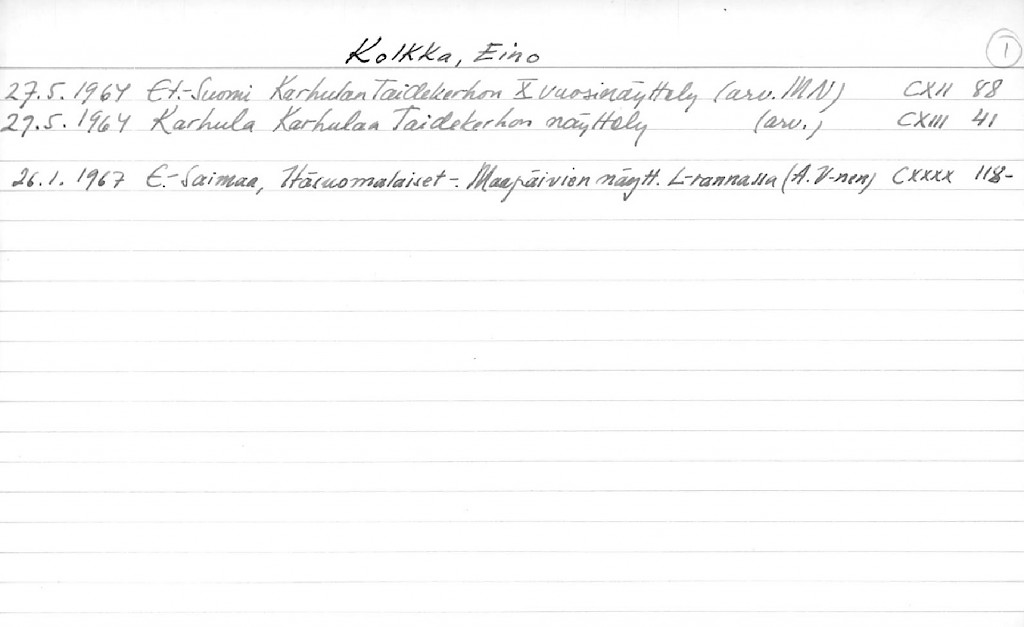 Kolkka, Eino 1
27.5.1964 Et.-Suomi Karhulan Taidekerhon X vuosinäyttely (arv. MN) CXII 88
27.5.1964 Karhula Karhulan Taidekerhon näyttely (arv.) CXIII 41
26.1.1967 E.-Saimaa, Itäsuomalaiset - Maapäivien näytt. L-rannassa (A. V-nen) CXXXX 118-